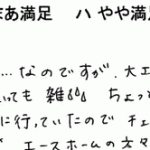 まあ満足 ハ やや満足
…なのですが、大工
っても 雑
ちょっ
に行っていたので チェ
エースホームの方々